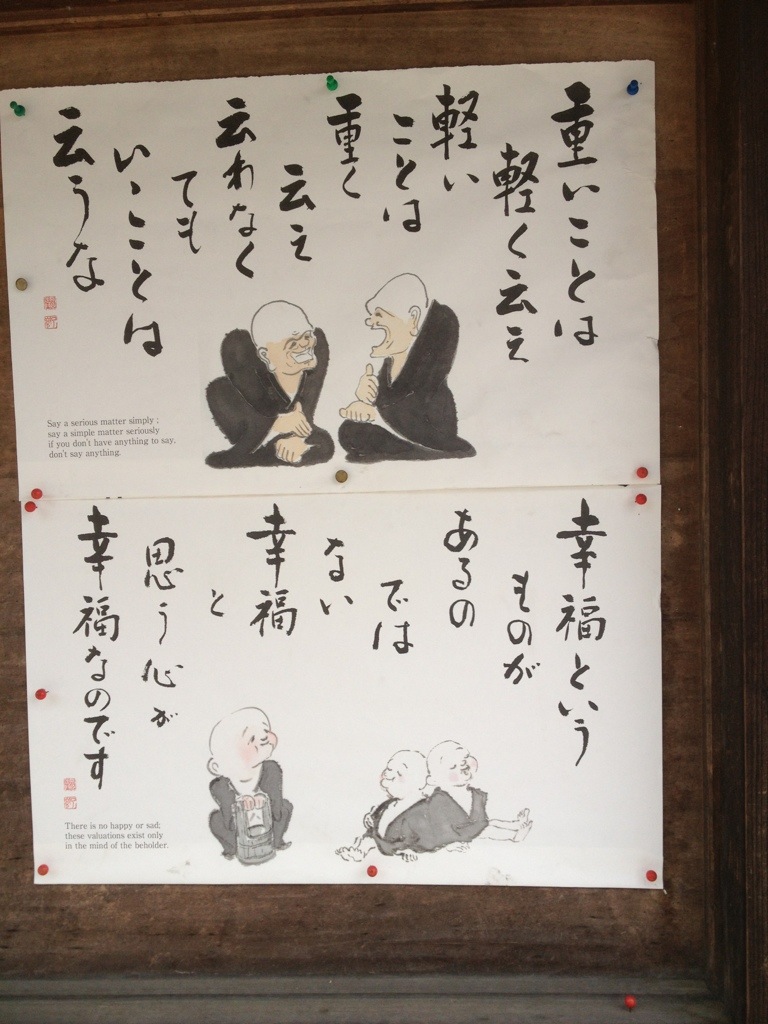 重いことは
軽く云え
軽い
ことは
重く
云え
云わなく
ても
いいことは
云うな
Say a serious matter simply ;
say a simple matter seriously
if you don't have anything to say.
don't say anything.
幸福という
ものが
あるの
では
ない
幸福
と
思う心が
幸福なのです
There is no happy or sad;
these valuations exist only
in the mind of the beholder.